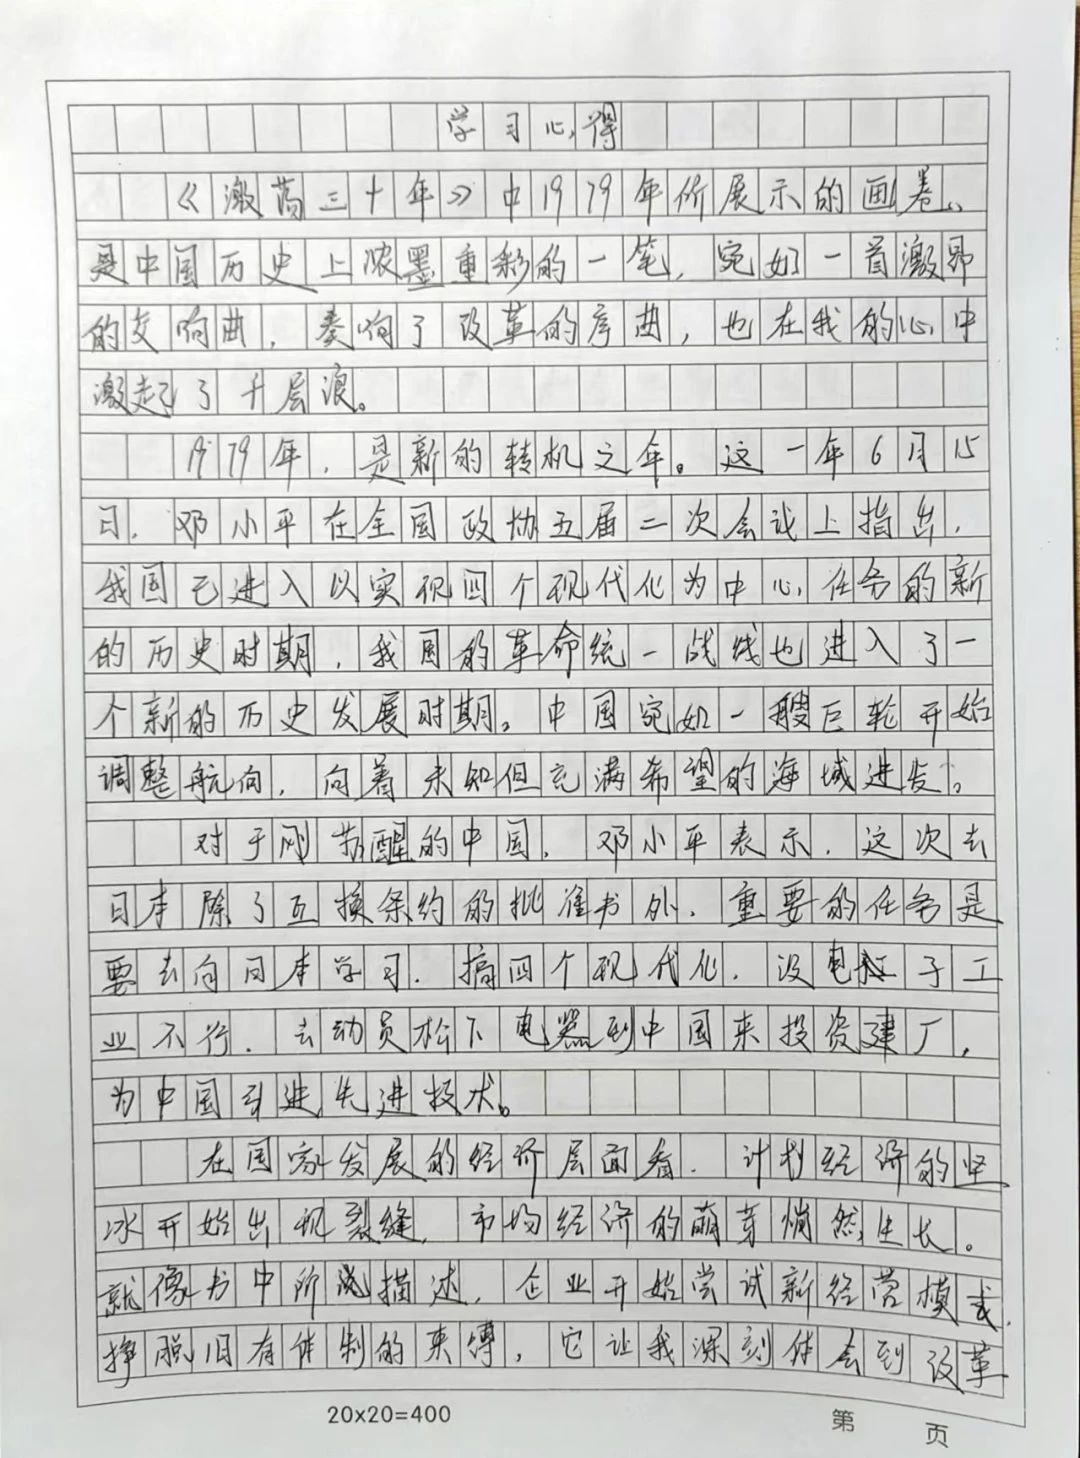 学习心得
《激荡三十年》中1979年价展示的画卷、
是中国历史上浓墨重彩的一笔，宛如一首激昂
的交响曲，奏响了改革的序曲，也在我的心中
激起了千层浪。
1979年，是新的转机之年。这一年6月15
日，邓小平在全国政协五届二次会议上指出，
我国已进入以实现四个现代化为中心任务的新
的历史时期，我国的革命统一战线也进入了一
个新的历史发展时期。中国宛如一艘巨轮开始
调整航向，向着未知但充满希望的海域进发。
对于刚苏醒的中国，邓小平表示，这次去
日本除了互换条约的批准书外，重要的任务是
要去向日本学习，搞四个现代化，没电子工
业不行，去动员松下电器到中国来投资建厂，
为中国引进先进技术。
在国家发展的经济层面看，计划经济的坚
冰开始出现裂缝，市场经济的萌芽悄然生长。
就像书中所说描述，企业开始尝试新经营模式，
挣脱旧有体制的束缚，它让我深刻体会到改革
20x20=400
第 页